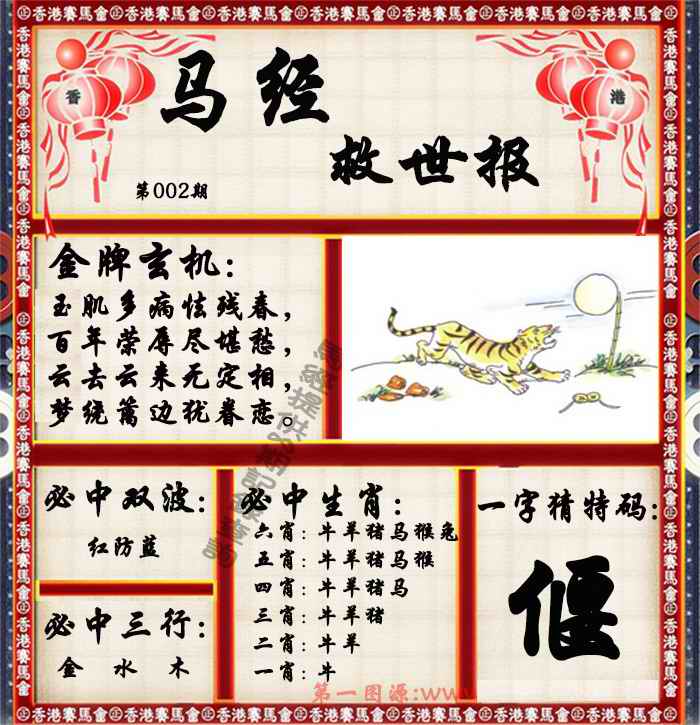 香港賽馬會
香
港
马经
救世报
第002期
金牌玄机：
玉肌多病怯残春，
百年荣辱尽堪愁，
云去云来无定相，
梦绕篱边犹眷恋。
必中双波：
红防蓝
必中三行：
金 水 木
必中生肖：
六肖：牛羊猪马猴兔
五肖：牛羊猪马猴
四肖：牛羊猪马
三肖：牛羊猪
二肖：牛羊
一肖：牛
一字猜特码：
偃
第一图源:www